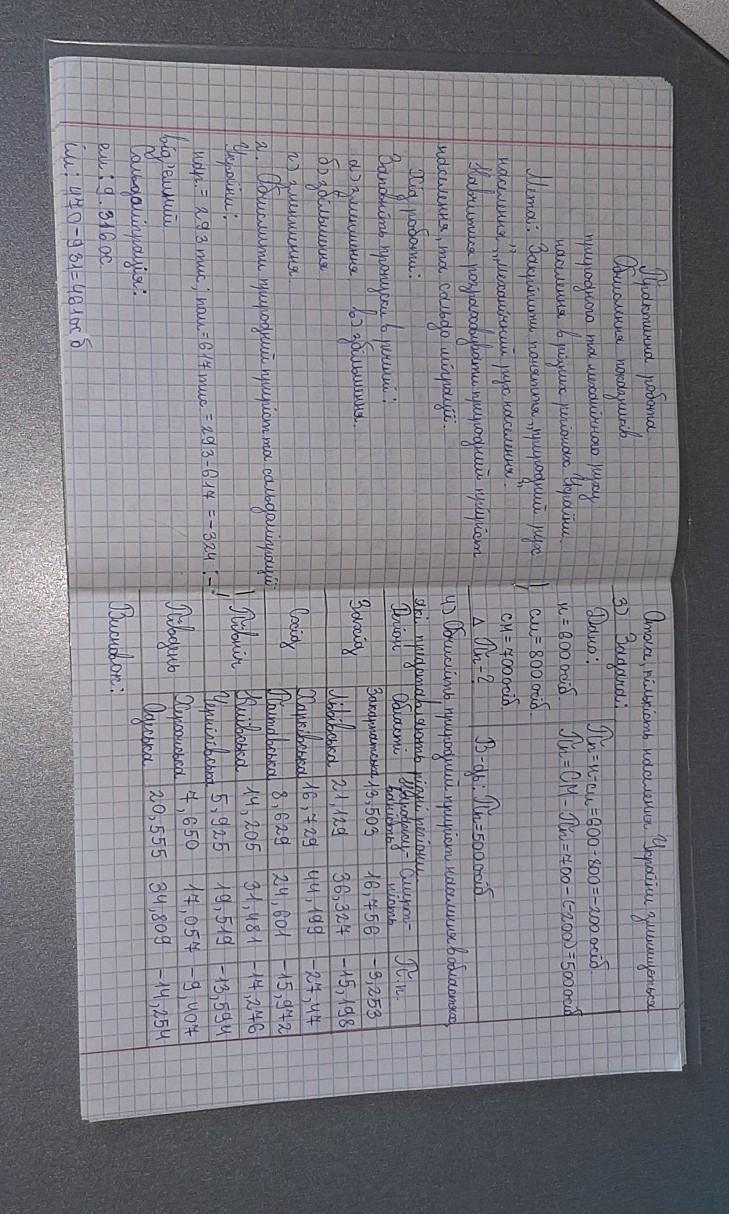 Практична робота
Обчислення показників
природного та механічного руху
населення в різних регіонах України.
Мета: Закріпити поняття „природний рух
населення", „механічний рух населення".
Навчитися розраховувати природний приріст
населення, та сальдо міграції.
Хід роботи:
Заповніть пропуски в реченні:
а) зменшення в) збільшення.
б) збільшення
г) зменшення.
2. Обчислити природний приріст та сальдоміграції
України:
нар. = 293 тис; пом = 617 тис = 293-617 = -324 ; -
від'ємний
Сальдоміграція:
ем: 9.316 ос.
ім: 470-931=461 осіб
Отже, кількість населення України зменшується
3) Задача:
Дано:
н = 600 осіб
см = 800 осіб.
СМ = 700 осіб
Δ Пн - ?
Пп = н-см = 600-800=-200 осіб
Пн = СМ - Пп = 700-(-200) = 500 осіб
В-дь: Пн = 500 осіб
4) Обчисліть природний приріст населення в областях,
які представляють різні регіони.
Регіон Області Народжуваність Смертність П.п.
Захід Закарпатська 13,503 16,756 -3,253
Львівська 21,129 36,327 -15,198
Схід Харківська 16,729 44,199 -27,47
Полтавська 8,629 24,601 -15,972
Північ Київська 14,205 31,481 -17,276
Чернігівська 5,925 19,519 -13,594
Південь Херсонська 7,650 17,057 -9,407
Одеська 20,555 34,809 -14,254
Висновок: